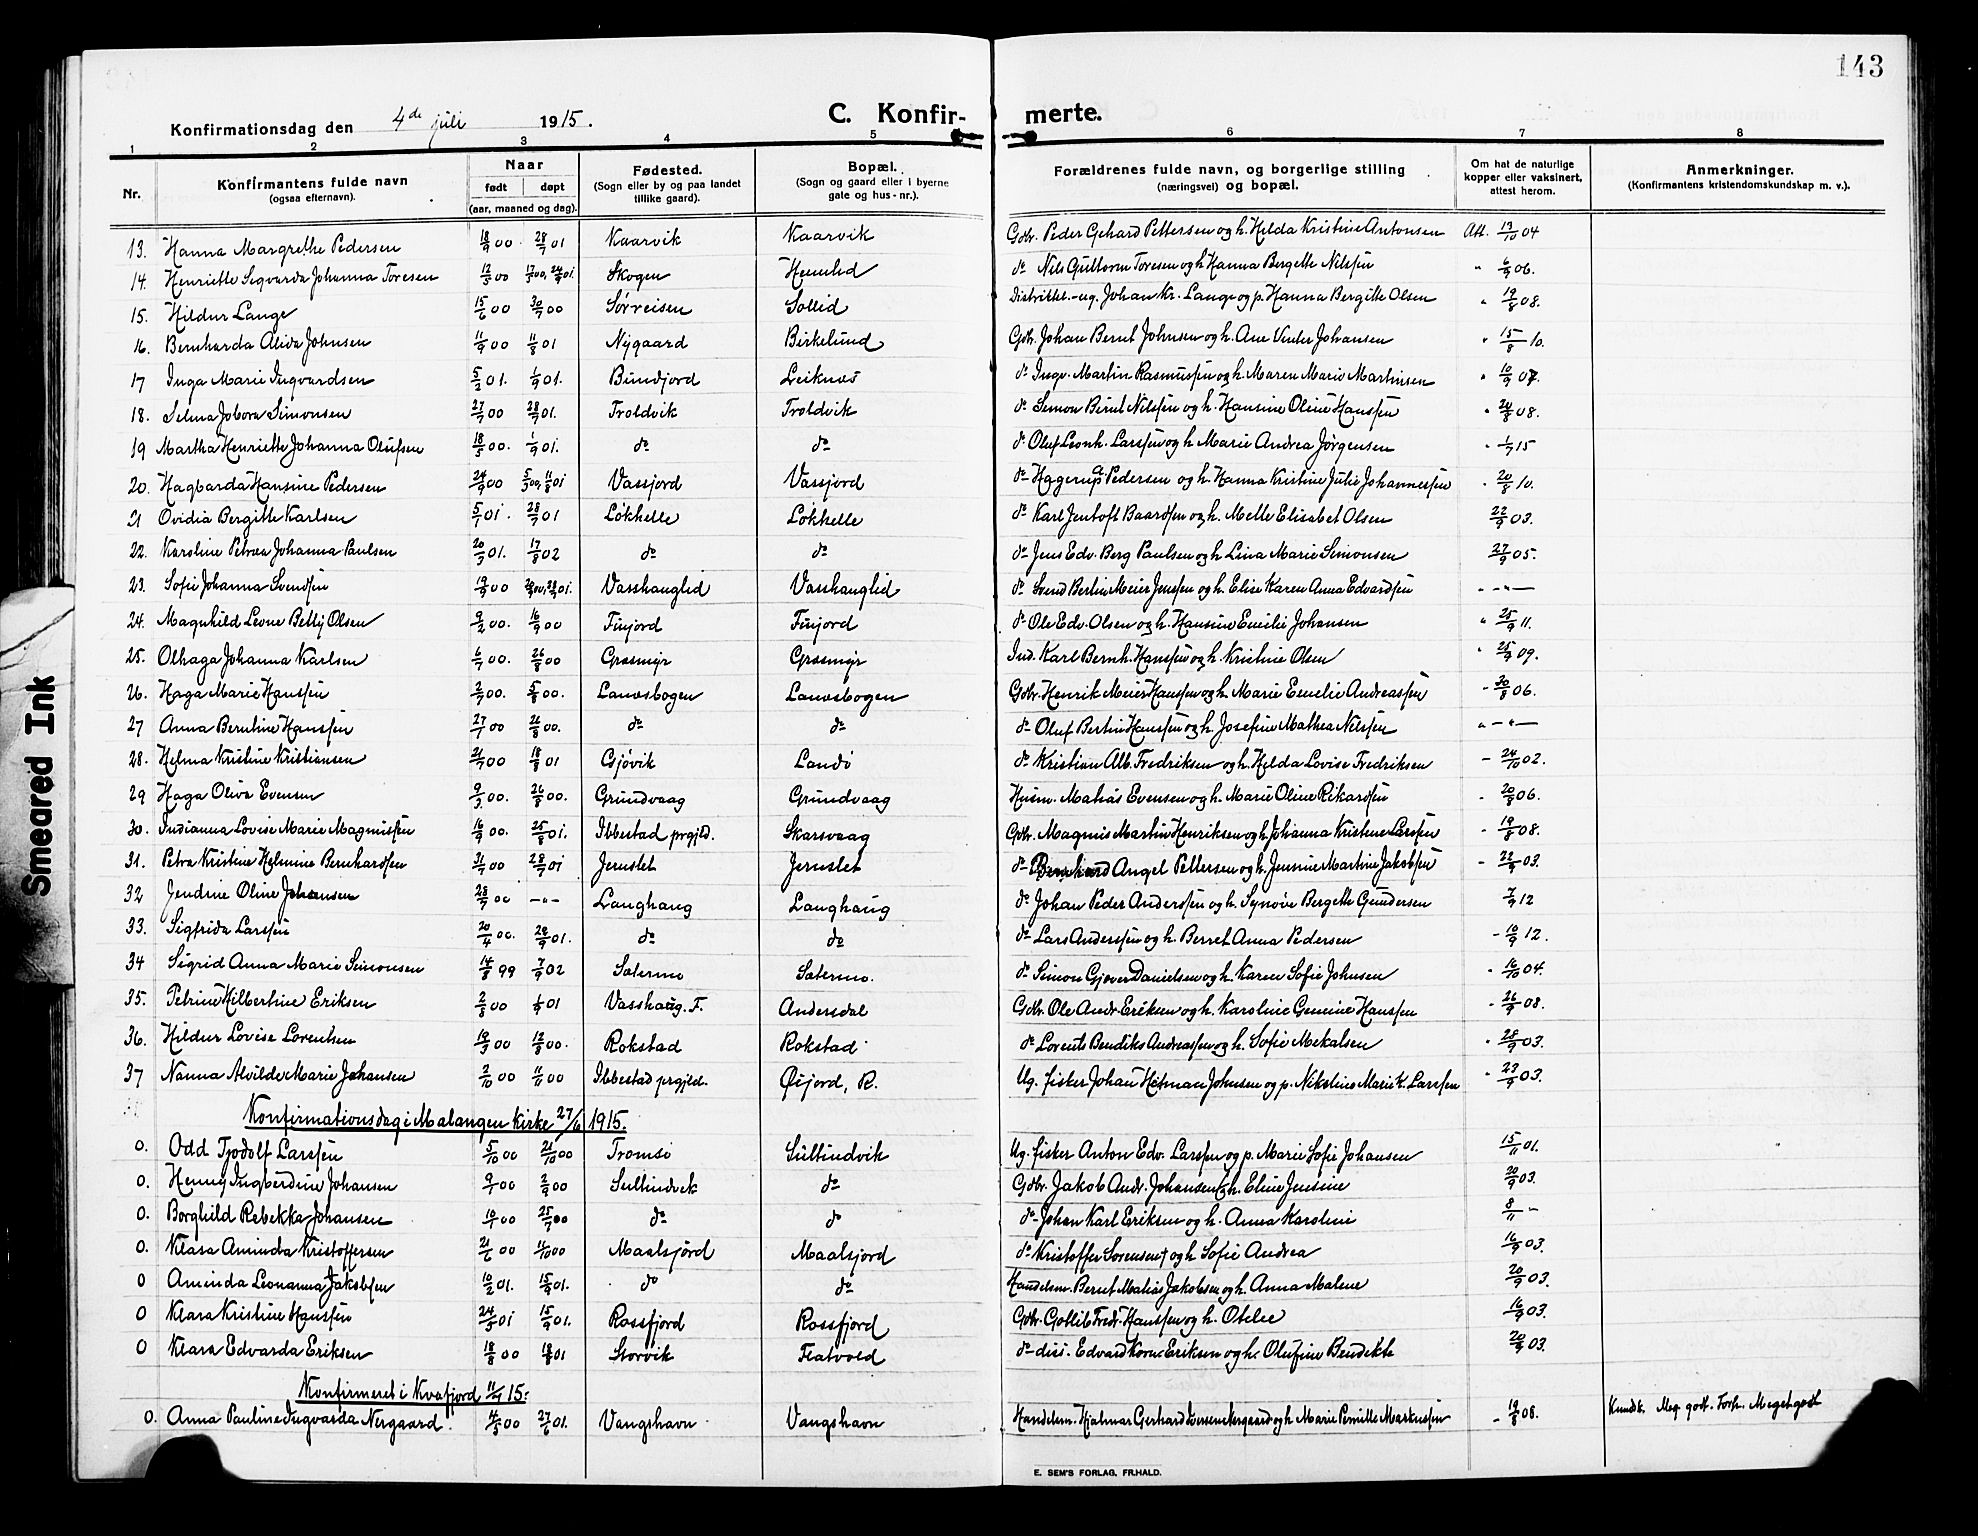 143
Konfirmationsdag den 4de juli 1915.
C. Konfir- merte.
1 2 3 4 5 6 7 8
Nr.
Konfirmantens fulde navn
(ogsaa efternavn).
Naar
født døpt
(aar, maaned og dag).
Fødested.
(Sogn eller by og paa landet
tillike gaard).
Bopæl.
(Sogn og gaard eller i byerne
gate og hus-nr.).
Forældrenes fulde navn, og borgerlige stilling
(næringsvei) og bopæl.
Om hat de naturlige
kopper eller vaksinert,
attest herom.
Anmerkninger.
(Konfirmantens kristendomskundskap m. v.).
13. Hanna Margrethe Pedersen 18/9 00 28/7 01 Kaarvik Kaarvik Gdbr. Peder Gehard Pettersen og h. Hilda Kristine Antonsen Att. 13/10 04
14. Henriette Segvarda Johanna Toresen 12/5 00 Skogen Heimlid do Nils Guttorm Toresen og h. Hanna Bergette Nilssen " 6/9 06.
15. Hildur Lange 15/6 00 30/7 00 Sørreisen Sollid Johan Kr. Lange og p. Hanna Bergitte Olsen " 19/8 08.
16. Bernharda Alida Johnsen 11/9 00 11/8 01 Nygaard Birkelund Gdbr. Johan Bernt Johnsen og h. Ane Venter Johansen " 15/8 10.
17 Inga Marie Ingvardsen 5/2 01. 1/9 01. Bundjord Leiknes do Ingv. Martin Rasmussen og h. Maren Marie Martinsen " 10/9 07.
18. Selma Jobora Simonsen 27/7 00 28/7 01. Troldvik Troldvik do Simon Bernt Nilssen og h. Hansine Oline Hanssen " 24/8 08.
19 Martha Henriette Johanna Olufsen 18/5 00. 1/9 01. do do do Oluf Leonh. Larssen og h Marie Andrea Jørgensen " 1/7 15
20. Hagbarda Hansine Pedersen 24/9 00 5/5 00, 11/8 01 Vassjord Vassjord do Hagerup Pedersen og h. Hanna Kristine Julie Johannessen " 20/8 10.
21 Ovidia Bergitte Karlsen 5/1 01. 28/7 01 Løkhelle Løkhelle do Karl Jentoft Baardsen og h. Mette Elisabet Olsen 22/9 03.
22. Karoline Petrea Johanna Paulsen 20/3 01. 17/8 02 do do do Jens Edv. Berg Paulsen og h Lina Marie Simonsen 27/9 05.
23. Sofie Johanna Svendsen Vasshauglid Vasshauglid do Svend Bertin Meier Jenssen og h. Elise Karen Anna Edvardsen " – " –
24. Magnhild Leone Betty Olsen 9/2 00. 16/9 00 Finjord Finjord do Ole Edv. Olsen og h. Hansine Emilie Johansen " 25/9 11.
25. Olhaga Johanna Karlsen 6/7 00. 26/8 00 Grasmyr Grasmyr Ind. Karl Bernh. Hanssen og h. Kristine Olsen " 25/9 09.
26. Haga Marie Hanssen 2/7 00. 5/8 00. Lanesbogen Lanesbogen Gdbr. Henrik Meier Hanssen og h. Marie Emelie Andreassen – 30/8 06.
27 Anna Berntine Hanssen 27/7 00 26/8 00. do do do Oluf Bertin Hanssen og h. Josefine Mathea Nilssen " – " –
28. Helma Kristine Kristiansen 21/7 00 18/8 01 Gjøvik Landø do Kristian Alb. Fredriksen og h. Hilda Lovise Fredriksen – 24/10 02.
29 Haga Olive Evensen 9/3 00. 26/8 00. Grundvaag Grundvaag Husm. Matias Evensen og h. Marie Oline Rikardsen " 20/8 06.
30. Indianna Lovise Marie Magnussen 16/9 00. 25/8 01. Ibbestad prgjld. Skarsvaag Gdbr. Magnus Martin Henriksen og h. Johanna Kristine Larssen – 19/8 08.
31. Petra Kristine Helmine Bernhardsen 31/7 00 28/7 01 Jernslet Jernslet do Bernhard Angel Pettersen og h. Jensine Martine Jakobsen – 22/9 03.
32 Jendine Oline Johansen 28/7 00 – " – Langhaug Langhaug do Johan Peder Anderssen og h. Synøve Bergette Gundersen 7/9 12
33. Sigfrida Larssen 20/4 00. 29/9 01. do do do Lars Anderssen og h. Berret Anna Pedersen – 10/9 12.
34 Sigrid Anna Marie Simonsen 14/8 99 7/9 02 Sætermo Sætermo. do Simon Gjøver Danielsen og h. Karen Sofie Johnsen " 16/10 04.
35. Petrine Hilbertine Eriksen 2/8 00 01 Vasshaug. F. Andersdal Gdbr. Ole Andr. Eriksen og h. Karoline Gemine Hanssen " 26/9 08.
36. Hildur Lovise Lorentsen 19/3 00 12/8 00. Rokstad Rokstad do Lorents Bendiks Andreassen og h. Sofie Mekalsen " 28/9 03.
37 Nanna Alvilde Marie Johansen 2/10 00 11/11 00 Ibbestad prgjld. Øijord, R. Ug. fisker Johan Hitman Johnsen og p. Nikoline Marie K. Larssen " 23/9 03.
Konfirmationsdag i Malangen kirke 27/6 1915.
0. Odd Tjodolf Larssen 5/10 00 21/10 00 Tromsø Sultindvik Ug. fisker Anton Edv. Larssen og p. Marie Sofie Johansen 15/11 01.
0. Henny Ingberdine Johansen 9/1 00 2/9 00 Sultindvik do Gdbr. Jakob Andr. Johansen og h. Eline Jensine 20/9 03.
0. Borghild Rebekka Johansen 10/1 00 25/7 00 do do do Johan Karl Eriksen og h. Anna Karoline 8/11 "
0. Klara Aminda Kristoffersen 21/6 00 11/10 00 Maalsjord Maalsjord do Kristoffer Sørensen † og h Sofie Andrea 16/9 03.
0 Aminda Leonanna Jakobsen 10/2 01. 15/9 01. do do Handelsm. Bernt Matias Jakobsen og h. Anna Malene 20/9 03.
0 Klara Kristine Hanssen 24/3 01 15/9 01. Rossfjord Rossfjord Gdbr. Gotlib Fredr. Hanssen og h. Otelie 16/9 03.
0 Klara Edvarda Eriksen 18/8 00 18/8 01 Storvik Flatvold do diss. Edvard Korn. Eriksen og h. Olufine Bendikte 20/9 03.
Konfirmeret i Kvæfjord 11/7 15:
0. Anna Pauline Ingvarda Nergaard. 4/3 00 27/6 01. Vangshavn Vangshavn Handelsm. Hjalmar Gerhard Iversen Nergaard og h Marie Pernille Markussen – 19/8 08. Kundsk. Meg. godt. Forh. Meget godt
E. SEM'S FORLAG, FR.HALD.
Smeared Ink